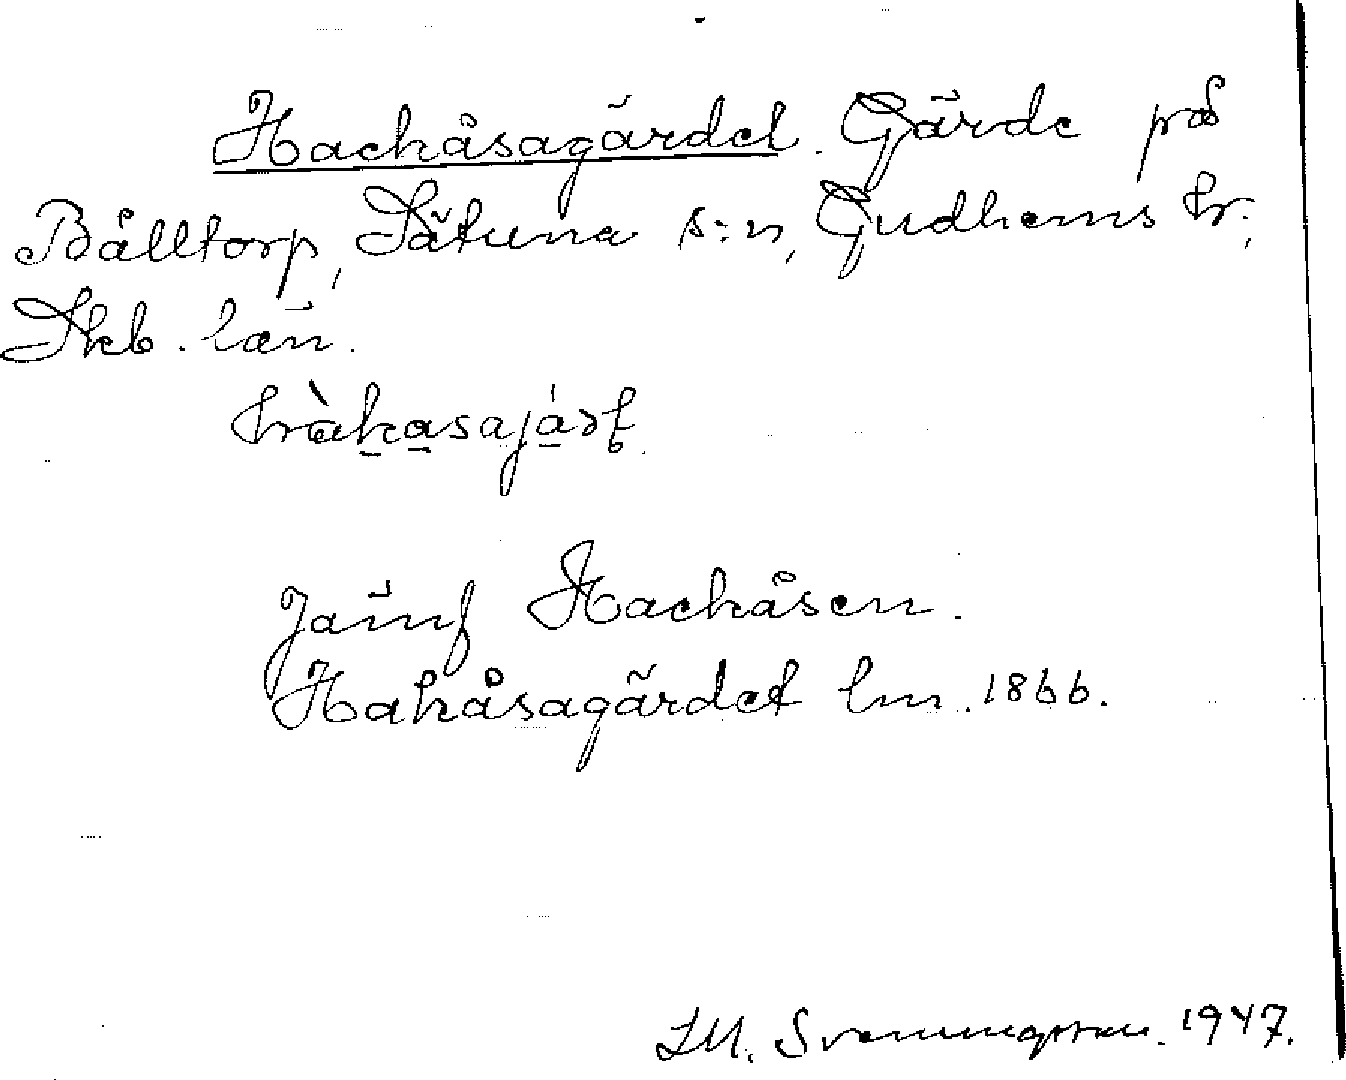 Hackåsagärdet. Gärde på
Bålltorp, Sätuna s:n, Gudhems hr.,
Skb. län.
hràkasajárt.
Jämf Hackåsen.
Hakåsagärdet lm. 1866.
Svenungsson. 1947.